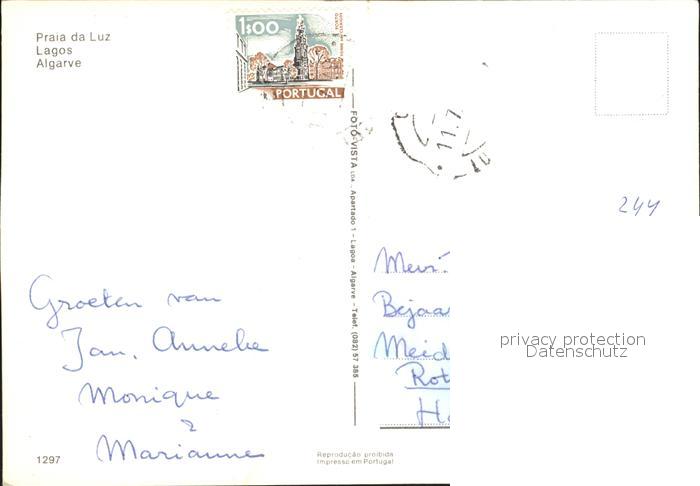 Praia da Luz
Lagos
Algarve
1$00
PORTUGAL
FOTO-VISTA LDA., Apartado 1 - Lagoa - Algarve - Telef. (082) 57 385
11.7
244
Groeten van
Jan, Anneke
Monique
&
Marianne
Mevr.
Bejaa
Meid
Rot
Ho
privacy protection
Datenschutz
1297
Reprodução proibida
Impresso em Portugal